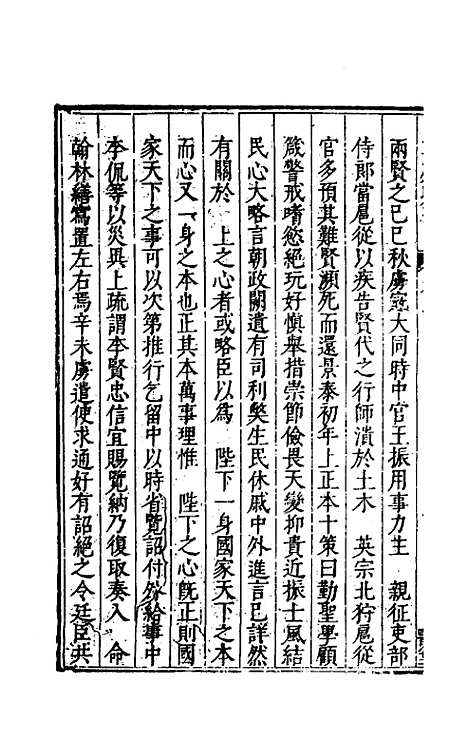 兩賢之己巳秋虜寇大同時中官王振用事力生　親征吏部
侍郎當扈從以疾告賢代之行師潰於土木　英宗北狩扈從
官多預其難賢瀕死而還景泰初年上正本十策曰勤聖學顧
箴警戒嗜慾絕玩好慎舉措崇節儉畏天變抑貴近振士風結
民心大略言朝政闕遺有司利獘生民休戚中外進言已詳然
有關於　上之心者或略臣以為　陛下一身國家天下之本
而心又一身之本也正其本萬事理惟　陛下之心旣正則國
家天下之事可以次第推行乞留中以時省覽詔付外給事中
李侃等以災異上疏謂本賢忠信宜賜覽納乃復取奏入　命
翰林繕寫置左右焉辛未虜遣使求通好有詔絕之令廷臣共